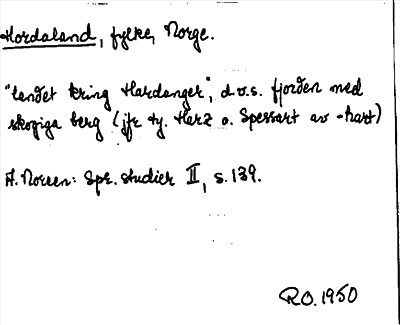 Hordaland, fylke, Norge.
"landet kring Hardanger", d.v.s. fjorden med
skogiga berg (jfr ty. Harz o. Spessart av -hart)
A. Noreen: Spr. studier II, s. 139.
R.O. 1950